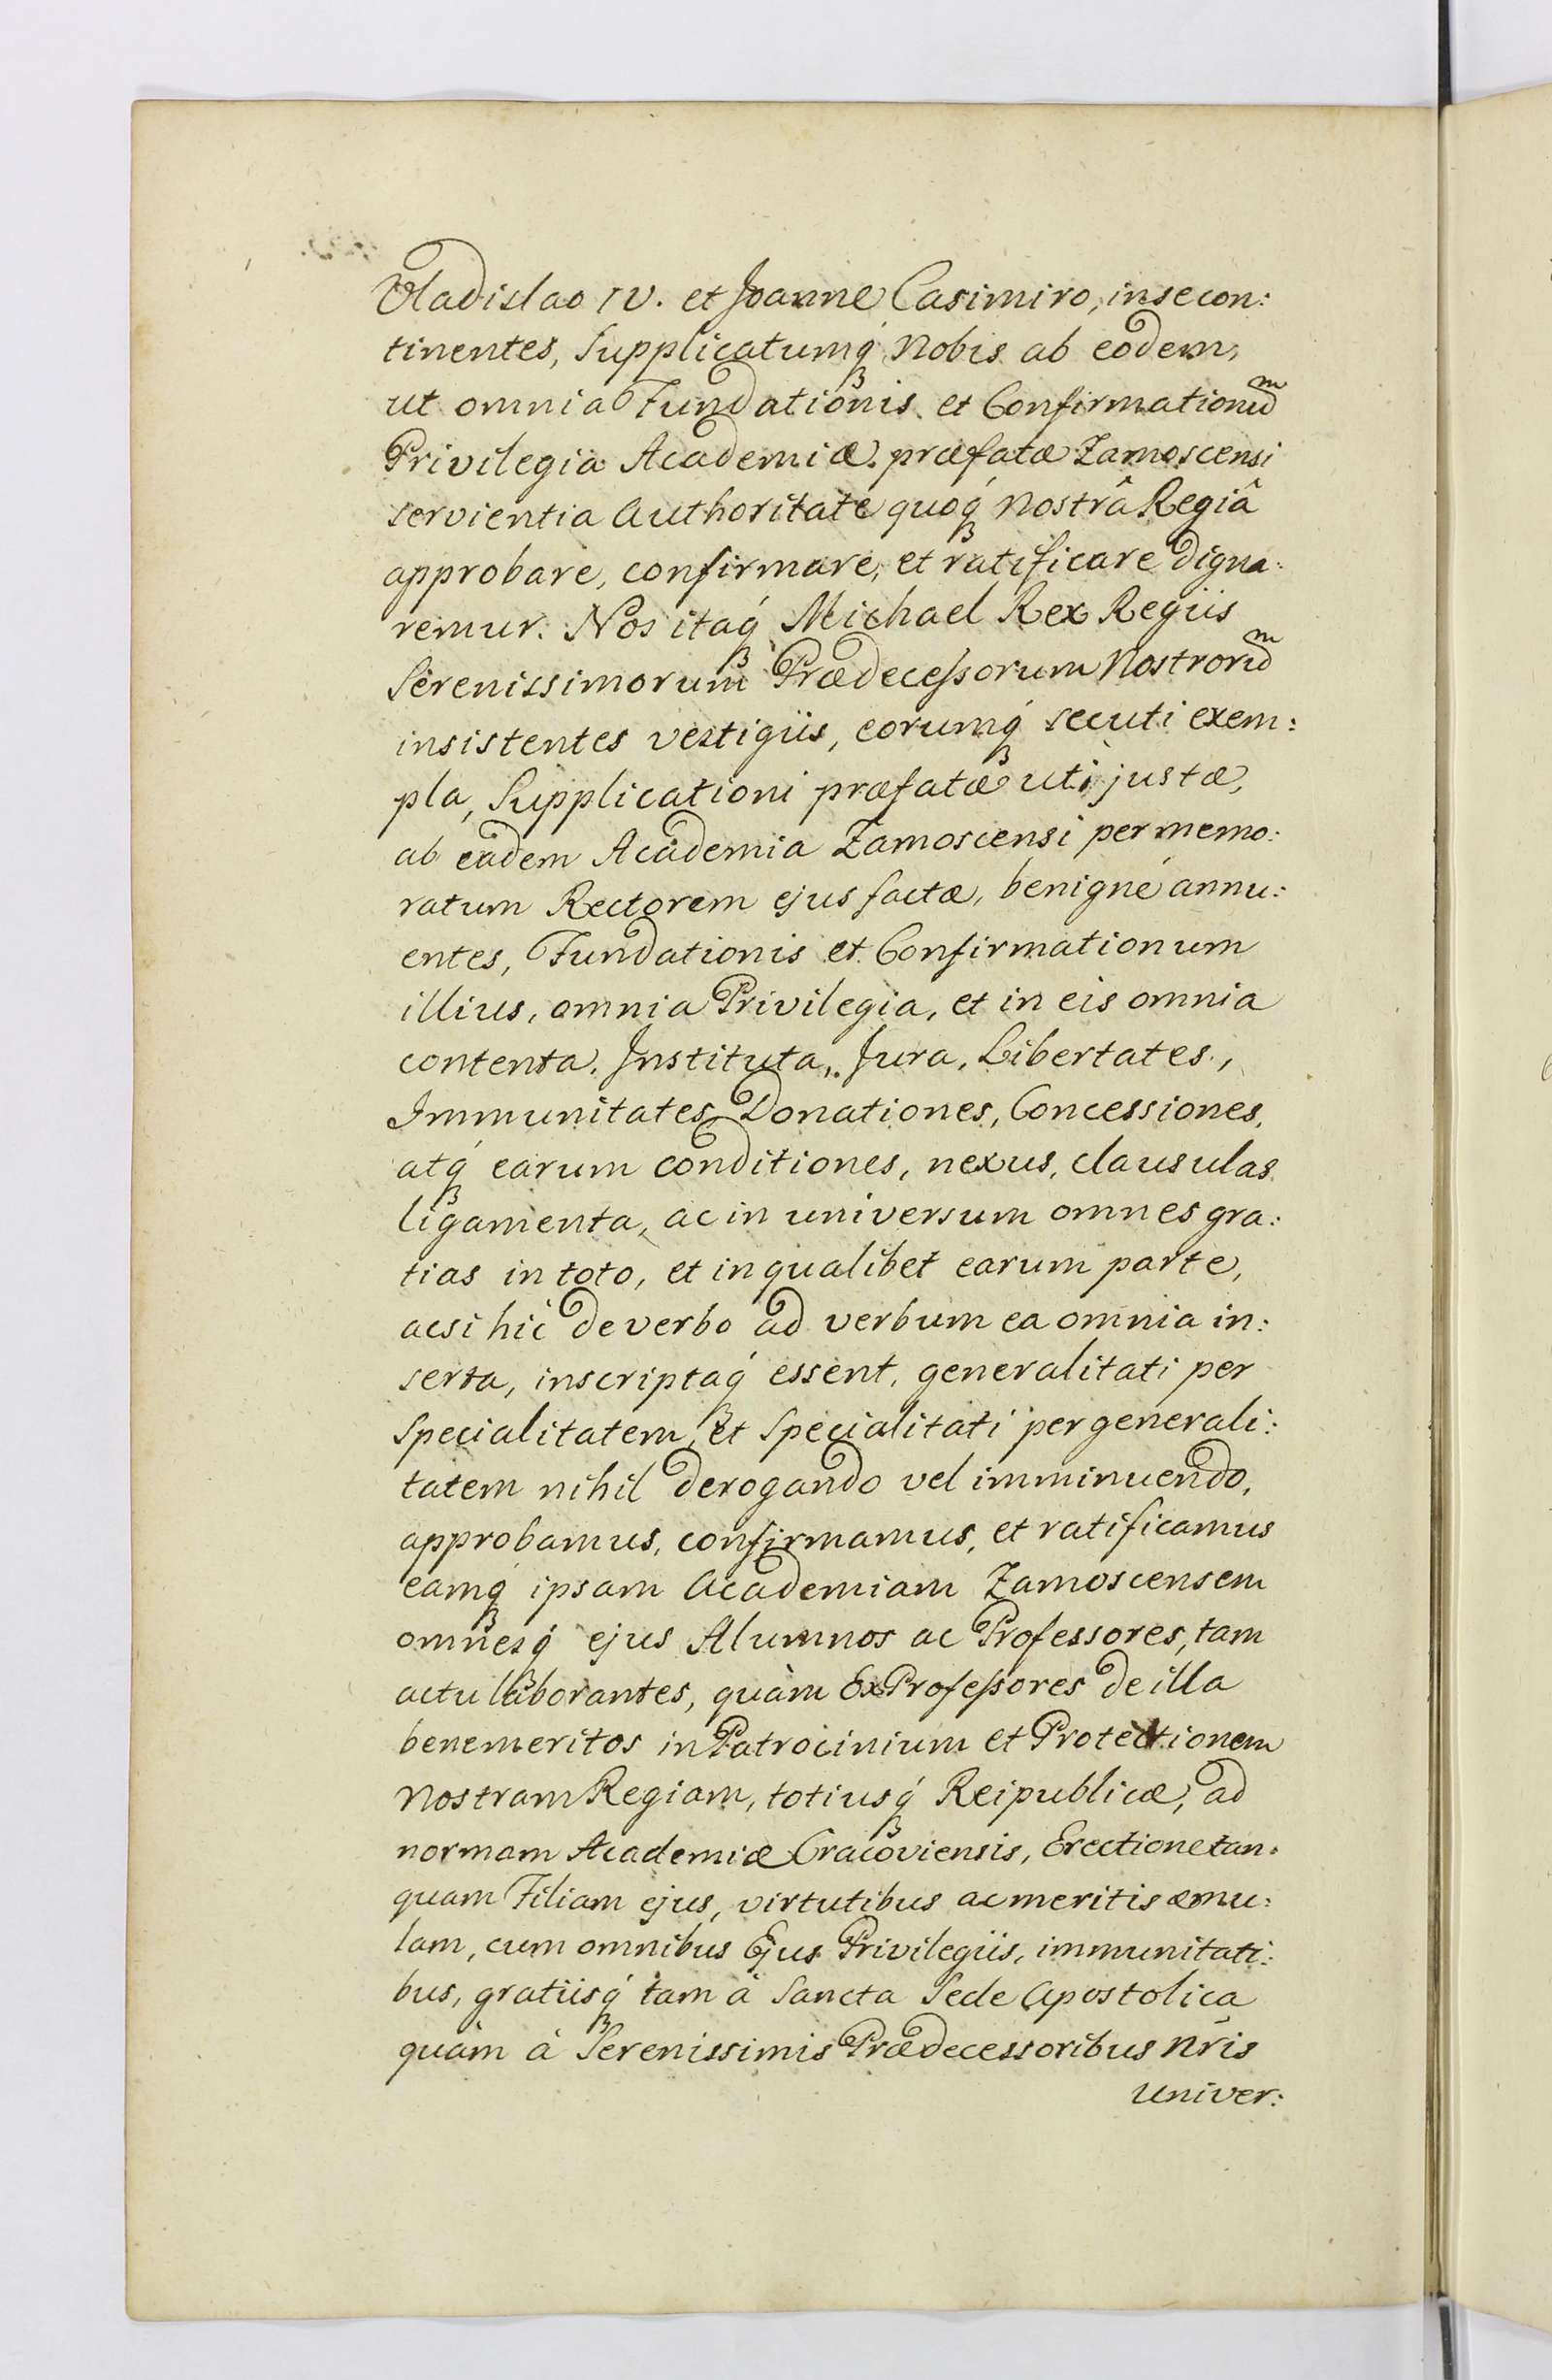 Vladislao IV. et Joanne Casimiro, in se con:
tinentes, Supplicatumq́ Nobis ab eodem,
ut omnia Fundationis et Confirmationuᵐ
Privilegia Academiæ præfatæ Zamoscensi
servientia Authoritate quoq́ Nostrâ Regiâ
approbare, confirmare, et ratificare digna:
remur. Nos itaq́ Michael Rex Regiis
Serenissimorum Prædecessorum Nostroruᵐ
insistentes vestigiis, eorumq́ secuti exem:
pla, Supplicationi præfatæ uti justæ,
ab eadem Academia Zamoscensi per memo:
ratum Rectorem ejus factæ, benigné annu:
entes, Fundationis et Confirmationum
illius, omnia Privilegia, et in eis omnia
contenta. Instituta, Jura, Libertates,
Immunitates Donationes, Concessiones,
atq́ earum conditiones, nexus, clausulas
ligamenta, ac in universum omnes gra:
tias in toto, et in qualibet earum parte,
acsi hic de verbo ad verbum ea omnia in:
serta, inscriptaq́ essent, generalitati per
Specialitatem, et Specialitati per generali:
tatem nihil derogando vel imminuendo,
approbamus, confirmamus, et ratificamus
eamq́ ipsam Academiam Zamoscensem
omnesq́ ejus Alumnos ac Professores, tam
actu laborantes, quàm Ex Professores de illa
benemeritos in Patrocinium et Protectionem
Nostram Regiam, totiusq́ Reipublicæ, ad
normam Academiæ Cracoviensis, Erectione tan:
quam Filiam ejus, virtutibus ac meritis æmu:
lam, cum omnibus Ejus Privilegiis, immunitati:
bus, gratiisq́ tam à Sancta Sede Apostolica
quàm à Serenissimis Prædecessoribus Nr̃is
Univer: